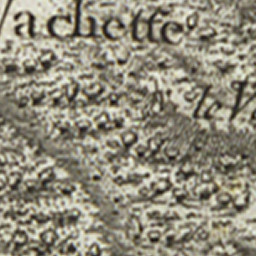 Vachette
le V